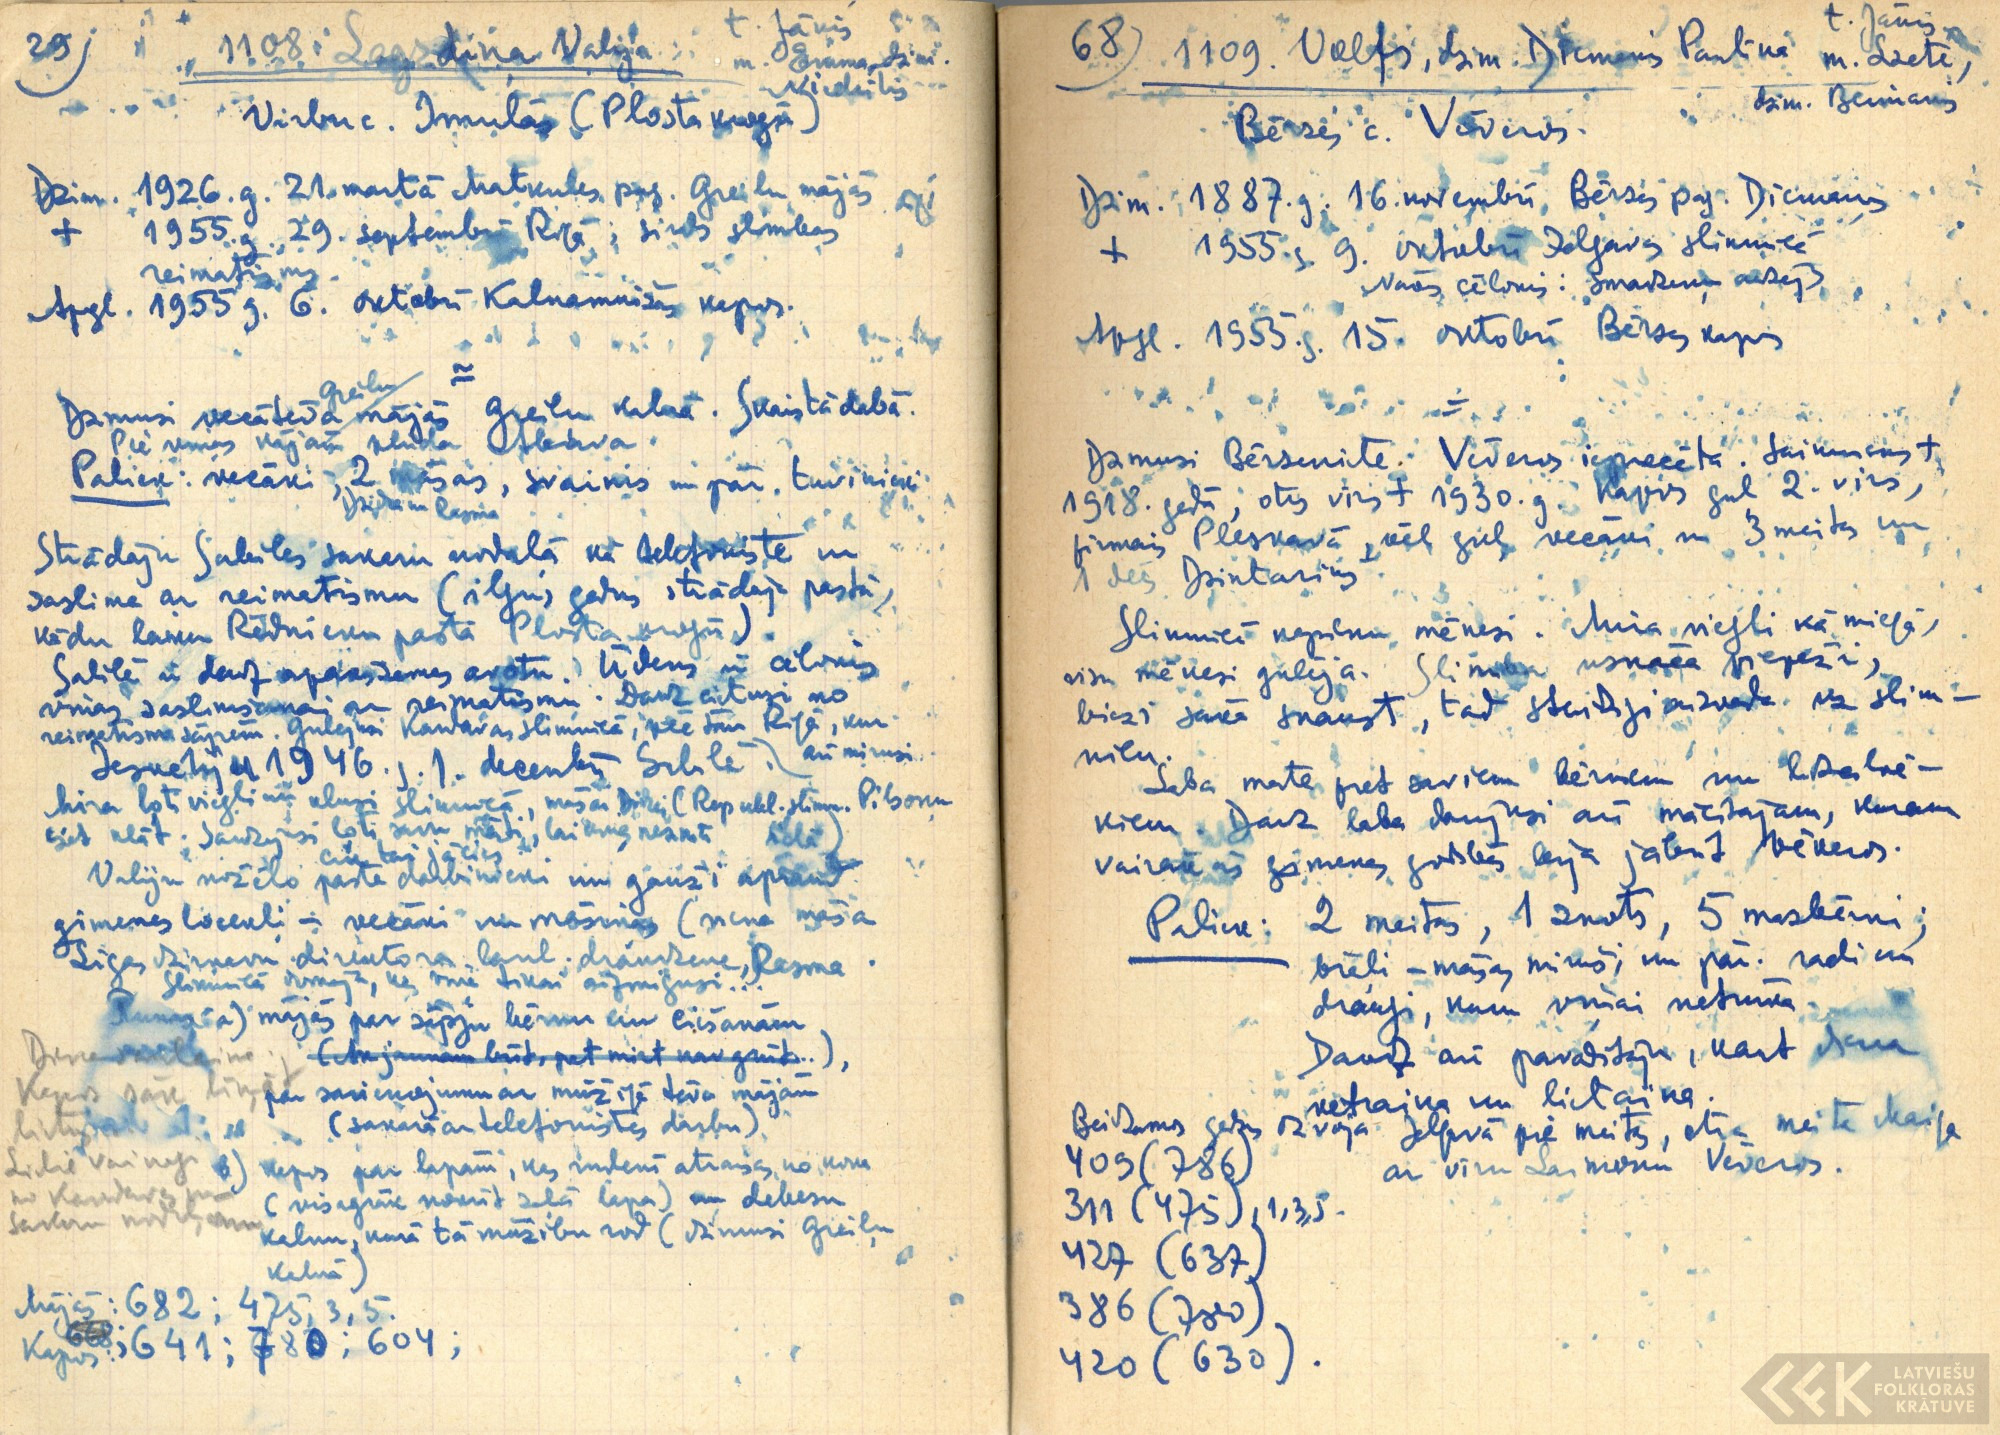 29)
1108. Lagzdiņa Valija
t. Jānis
m. Emma, dzim.
Virbu c. Imulās (Plosta krogā)
Dzim. 1926. g. 21. martā Matkules pag. Greiļu mājās
+ 1955. g. 29. septembrī Rīgā; sirds slimības
reimatisms.
Apgl. 1955 g. 6. oktobrī Kalnamuižas kapos.
Greiļu
Dzimusi vectēva mājās Greiļu kalnā. Skaistā dabā.
Pie viņas kājām Abava.
Paliek: vecāki, 2 māsas, svainis un pār. tuvinieki
Strādāju Sabiles sakaru nodaļā kā telefoniste un
saslima ar reimatismu (ilgus gadus strādāja pastā,
kādu laiku Rēdnieku pastā Plosta krogū)
Sabilē ir daudz apakšzemes avotu. Ūdens ir cēlonis
viņas saslimšanai ar reimatismu. Daudz cietusi no
reimatisma sāpēm. Gulējusi Kandavas slimnīcā, pēc tam Rīgā, kur
arī mirusi.
Iesvētīju 1946. g. 1. decembrī Sabilē.
Mira ļoti viegli un klusi slimnīcā, māsai (Republ. slimn. Pilsoņu
ielā)
klāt. Saudzējusi ļoti savu māti, lai
Valiju nožēlo pasta darbinieki un gauži apraud
ģimenes locekļi – vecāki un māsiņas (viena māsa
Līgas dzirnavu direktora laul. draudzene, Rasma
Slimnīcā domāja, ka viņa tikai aizmigusi...
Runa: a) mājās par sāpju bērnu un ciešanām
(Ak jaunam būt, pat mirt nav grūti..),
par savienojumu ar mūžīgā tēva mājām
(sakarā ar telefonistes darbu)
b) kapos par lapām, kas rudenī atraisās no koka
(visagrāk nokrīt zaļā lapa) un debesu
kalnu, kurā tā mūžību rod (dzimusi Greiļu
kalnā)
Kapos sāk
Mājās: 682; 475, 3, 5.
Kapos: 668; 641; 780; 604;
68)
1109. Volfs, dzim. Dīcmanis Paulīna
t. Jānis
m. Lzete,
dzim. Bermanis
Bērzes c. Vēveros.
Dzim. 1887. g. 16. novembrī Bērzes pag. Dīcmaņos
+ 1955. g. 9. oktobrī Jelgavas slimnīcā
Nāves cēlonis: smadzeņu audzējs
Apgl. 1955. g. 15. oktobrī Bērzes kapos
Dzimusi Bērzeniete. Vēveros ieprecēta. Saimnieks +
1918. gadā, otrs vīrs + 1930. g. Kapos guļ 2. vīrs,
pirmais Pleskavā, vēl guļ vecāki un 3 meitas un
1 dēls Dzintariņš.
Slimnīcā nepilnu mēnesi. Mira viegli kā miegā,
visu mēnesi gulēja. Slimība uznāca piepeži,
bieži sāka snaust, tad steidzīgi aizveda uz slim-
nīcu.
Laba māte pret saviem bērniem un līdzcilvē-
kiem. Daudz laba darījusi arī mācītājam, kuram
vairākas ģimenes godības bija jābūt Vēveros.
Paliek: 2 meitas, 1 znots, 5 mazbērni;
brāļi – māsas miruši un pār. radi un
draugi, kuru viņai netrūka.
Daudz arī pavadītāju, kaut diena
netraina un lietaina.
Beidzamos gadus dzīvoja Jelgavā pie meitas, otra meita Maija
ar vīru Laimoni Vēveros.
409 (786)
311 (475), 1, 3, 5.
427 (637)
386 (780)
420 (630).
LATVIEŠU
FOLKLORAS
KRĀTUVE